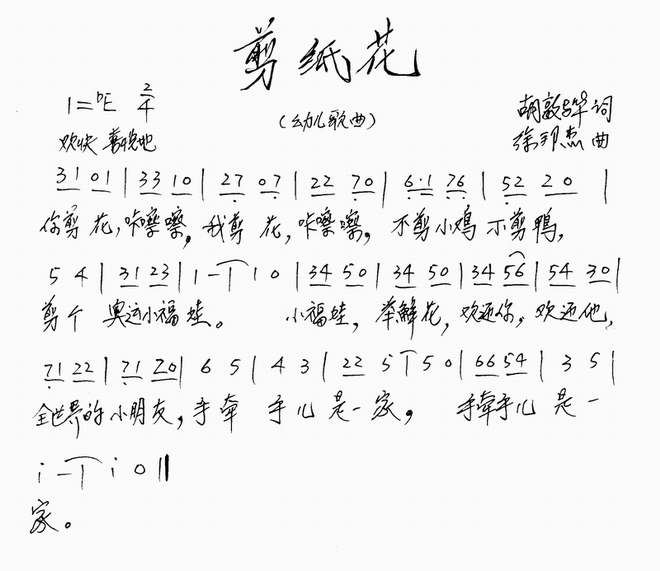 剪纸花
1=♭E 2/4
(幼儿歌曲)
胡敦骅 词
欢快 喜悦地
徐邦杰 曲
31 01 | 33 10 | 27 07 | 22 70 | 6·1 76 | 52 20 |
你剪 花,咔嚓嚓,我剪 花,咔嚓嚓,不剪小鸡 不剪鸭,
5 4 | 31 23 | 1 - | 1 0 | 34 50 | 34 50 | 34 56 | 54 30 |
剪个 奥运小福娃。 小福娃,举鲜花,欢迎你,欢迎他,
71 22 | 71 20 | 6 5 | 4 3 | 22 5 | 5 0 | 66 54 | 3 5 |
全世界的小朋友,手牵 手儿 是一家, 手牵手儿 是一
i - | i 0 ‖
家。